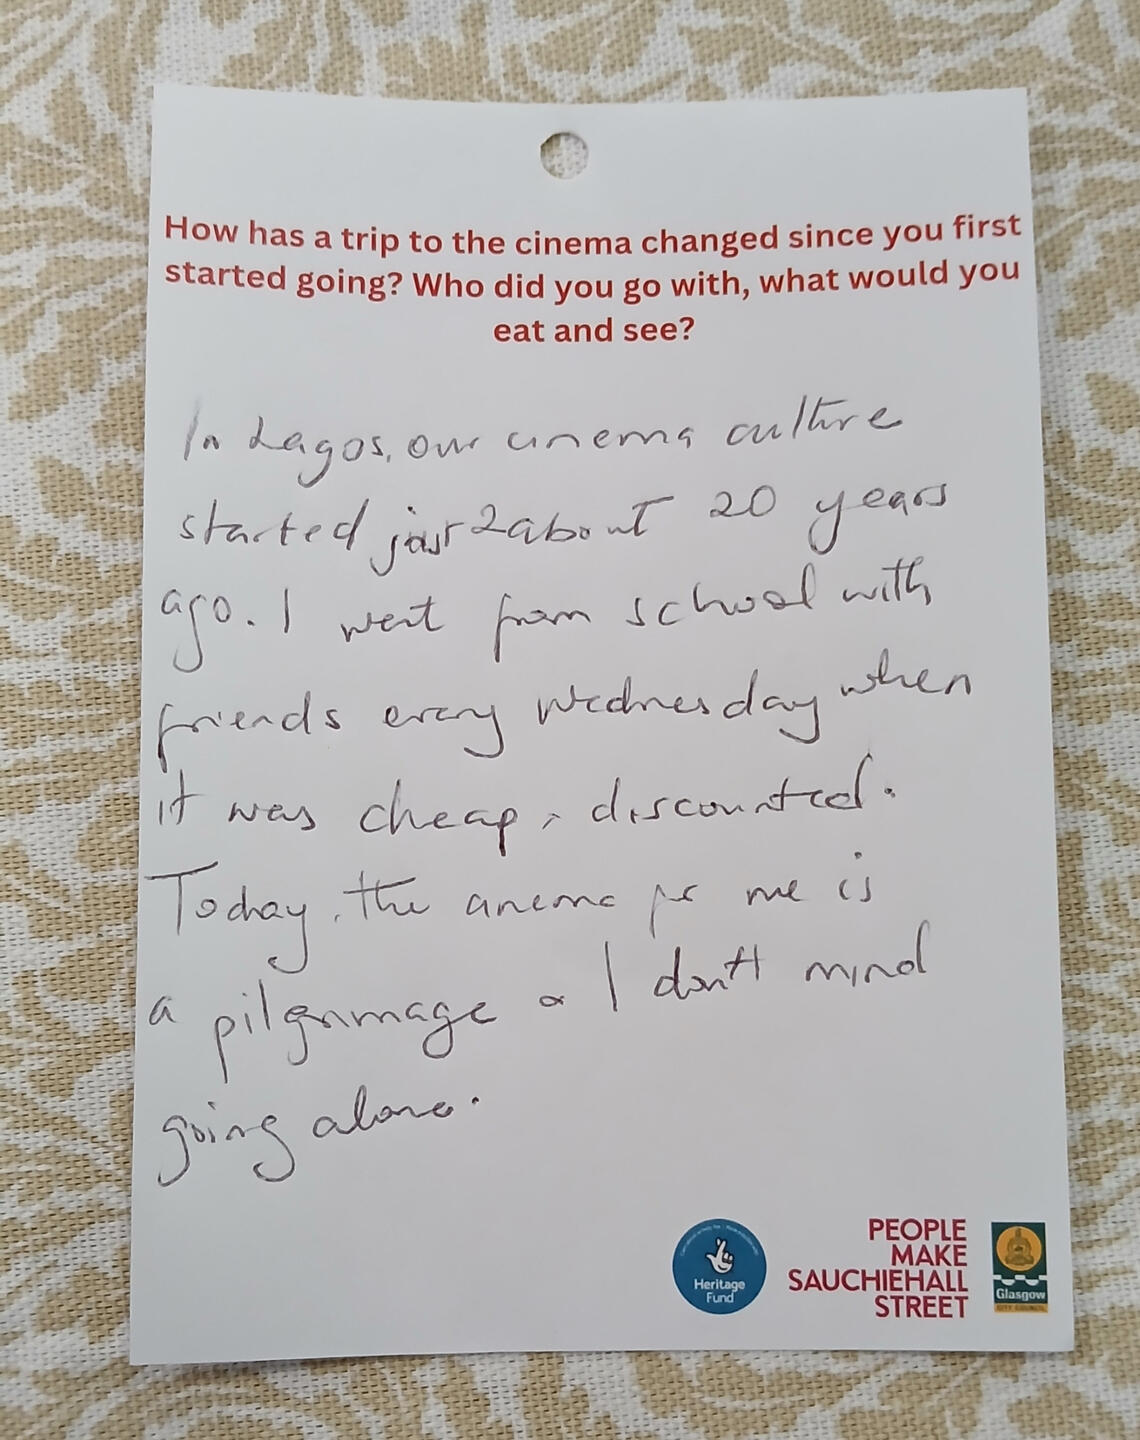 How has a trip to the cinema changed since you first
started going? Who did you go with, what would you
eat and see?
In Lagos, our cinema culture
started just about 20 years
ago. I went from school with
friends every Wednesday when
it was cheap, discounted.
Today, the cinema for me is
a pilgrimage & I don't mind
going alone.
Heritage
Fund
PEOPLE
MAKE
SAUCHIEHALL
STREET
Glasgow
CITY COUNCIL